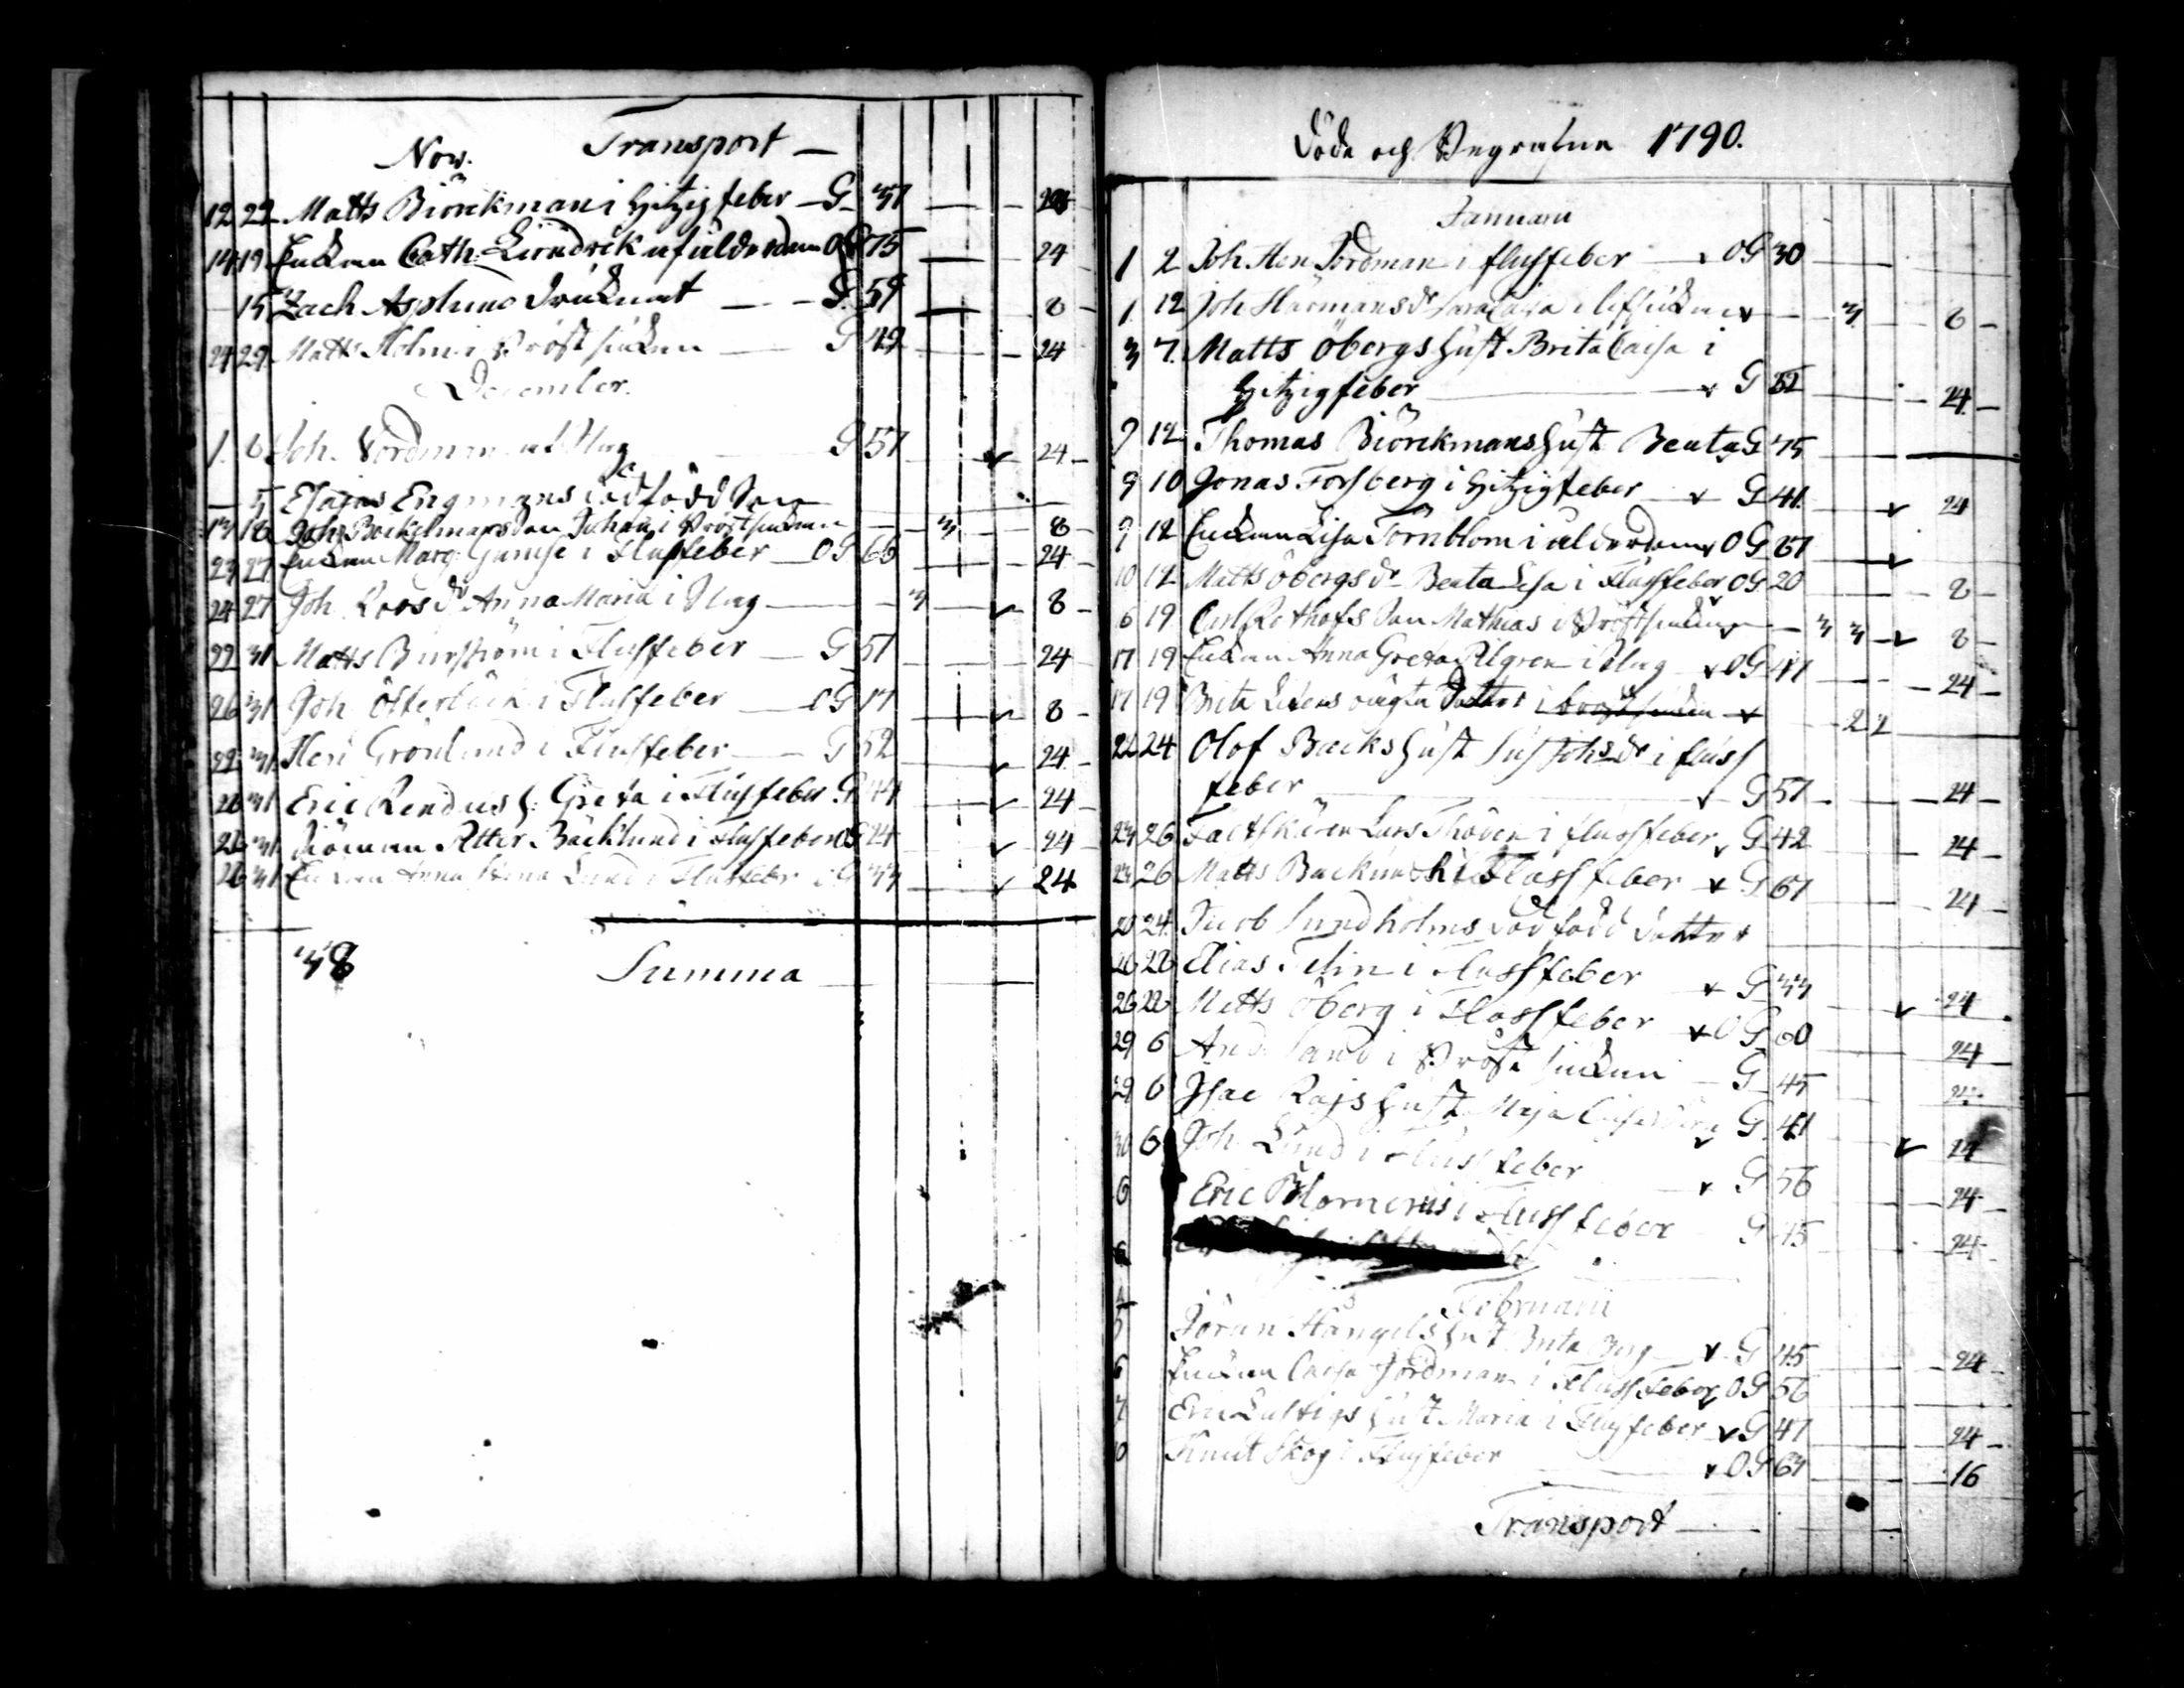 Nov. Transport —
12 22 Matts Biörckman i Hitzig feber — G 37 — 24
14 19 Enckan Cath. Liondrik af ålderdom OG 75 — 24
— 15 Zach Asplund druknat — G. 59 — 8 —
24 29 Matts Holm i Bröst siukan — G 49 — 24
December.
1. 6 Joh. Nordman af Slag G 57 — 24 —
— 5 Esaias Engmans dödfödd Son
13 18 Joh. Backelmans Son Johan i Bröstsiukan — 3 — 8 —
23 27 Enckan Marg. i Flussfeber — OG 66 — 24 —
24 27 Joh. Roos dr Anna Maria i Slag — 3 — 8 —
22 31 Matts Burström i Flussfeber — G 57 — 24
26 31 Joh Österback i Flussfeber — OG 17 — 8 —
22 31. Hen Grönlund i Flussfeber — G 52 — 24 —
26 31 Eric Rendus h. Greta i Flussfeber G 44 — 24 —
26 31 Petter Bäcklund i Flussfeber OG 24 — 24 —
26 31 Enckan Anna Stina Lund i Flussfeber OG 33 — 24
38 Summa —
Döde och Begrafne 1790.
Januarii
1 2 Joh Hen Nordman i flussfeber — OG 30
1 12 Joh Harmans dr Sara Caisa i — 3 — 8 —
3 7. Matts Öbergs Hust Brita Caisa i
Hitzig feber — G 52 — 24 —
9 12 Thomas Biörckmans Hust Beata G 75
9 10 Jonas Forsberg i Hitzig feber — G 41 — 24
9 12 Enckan Lisa Törnblom i ålderdom OG 67
10 12 Matts Öbergs dr Beata Lisa i Flussfeber OG 20 — 8 —
6 19 Carl Rothofs Son Mathias i Bröstsiukan — 3 3 — 8 —
17 19 Enckan Anna Greta Pilgren i Slag OG 47 — 24 —
17 19 Brita oägta Dotter i bröstsiukan — 22
22 24 Olof Backs Hust Johs dr i fluss
feber — G 57 — 24 —
23 26 Lars Thoden i flussfeber G 42 — 24 —
23 26 Matts i Flussfeber G 67 — 24 —
20 24 Jacob Sundholms dödfödd dotter
26 28 Elias Telin i Flussfeber G 33 — 24
26 28 Matts Öberg i Flussfeber OG 60 — 24 —
29 6 And. Sand i Bröst siukan — G 45 — 24
29 6 Isac Rajs Hust Maja G 41 — 24
30 6 Joh Lund i Flussfeber G 56 — 24 —
6 Eric i Flussfeber G 45 — 24 —
Februarii
5 Jöran Hängels Hust Brita Berg G 45 — 24 —
6 Enckan Caisa Nordman i Flussfeber OG 56
7 Eric Lustigs Hust Maria i Flussfeber G 47 — 24 —
10 Knut Skog i Flussfeber OG 63 — 16
Transport —